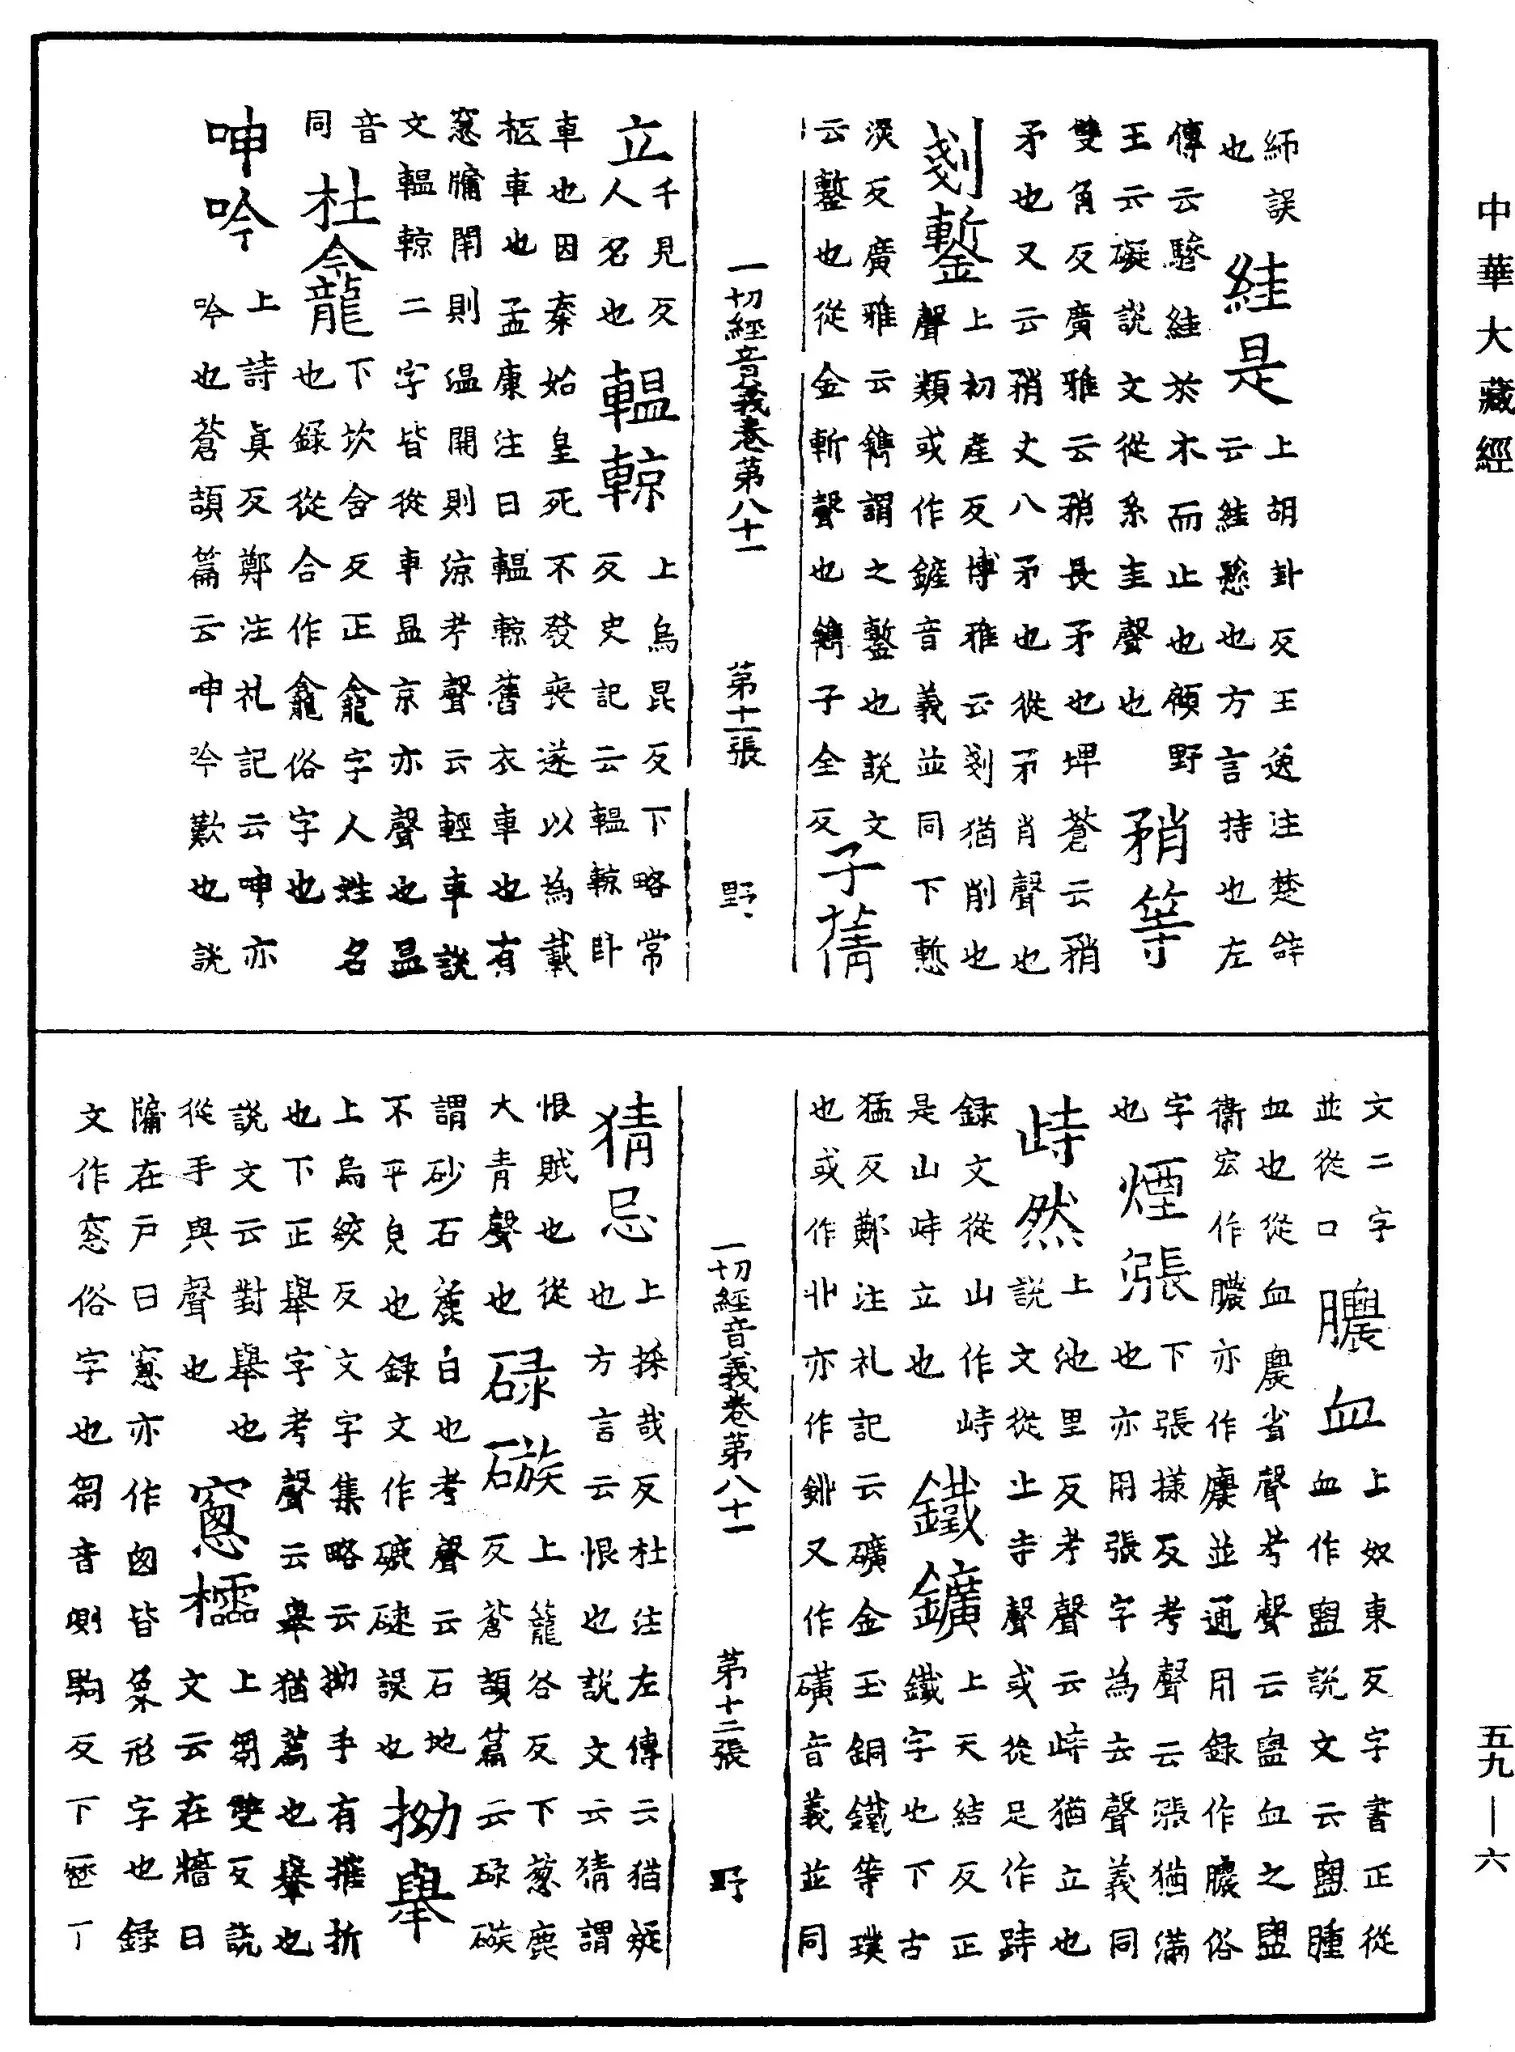 中華大藏經
五九—六
師誤
也
絓是
上胡卦反王逸注楚辞
云絓懸也方言持也左
傳云驂絓於木而止也顧野
王云礙說文從系圭聲也
矟等
雙角反廣雅云矟長矛也埤蒼云矟
矛也又云矟丈八矛也從矛肖聲也
剗鏨
上初產反博雅云剗猶削也
聲類或作鏟音義並同下慙
淡反廣雅云鐫謂之鏨也說文
云鏨也從金斬聲也鐫子全反
子蒨
一切經音義卷第八十一
第十一張
野
千見反
人名也
立
輼輬
上烏昆反下略常
反史記云輼輬卧
車也因秦始皇死不發喪遂以為載
柩車也孟康注曰輼輬舊衣車也有
窓牖閉則温開則涼考聲云輕車說
文輼輬二字皆從車昷京亦聲也昷
音
同
杜龕
下坎含反正龕字人姓名
也錄從合作龕俗字也
呻吟
上詩真反鄭注礼記云呻亦
吟也蒼頡篇云呻吟歎也說
文二字
並從口
膿血
上奴東反字書正從
血作盥說文云盥腫
血也從血農省聲考聲云盥血之盥
衞宏作膿亦作癑並通用録作膿俗
字
也
煙漲
下張樣反考聲云漲猶滿
也亦用張字為去聲義同
峙然
上池里反考聲云峙猶立也
說文從止寺聲或從足作跱
録文從山作峙
是山峙立也
鐵鑛
上天結反正
鐵字也下古
猛反鄭注礼記云礦金玉銅鐵等璞
也或作丱亦作鉚又作磺音義並同
一切經音義卷第八十一
第十二張
野
猜忌
上採哉反杜注左傳云猶疑
也方言云恨也說文云猜謂
恨賊也從
大青聲也
碌磩
上籠谷反下葱鹿
反蒼頡篇云碌磩
謂砂石麤白也考聲云石地
不平皃也録文作磩䃚誤也
拗舉
上烏絞反文字集略云拗手有摧折
也下正舉字考聲云舉猶薦也舉也
說文云對舉也
從手與聲也
窻櫺
上芻雙反說
文云在牆曰
牖在戶曰窻亦作囱皆象形字也録
文作窓俗字也芻音測駒反下歷丁